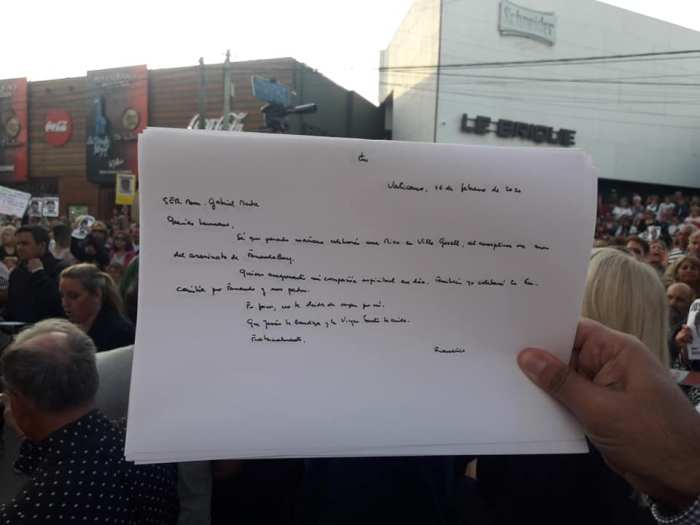 Schneider
LE BRIQUE
Coca-Cola
Vaticano, 16 de febrero de 2020
Gabriel
Querido hermano,
Sé que pasado mañana una Misa en Villa Gesell, al cumplirse un mes
del asesinato de Fernando Báez.
Quiero asegurarte mi compañía espiritual ese día. También yo celebraré la Eu-
caristía por Fernando y sus padres.
Por favor, no te olvides de rezar por mí.
Que Jesús te bendiga y la Virgen Santa te cuide.
Fraternalmente,
Francisco